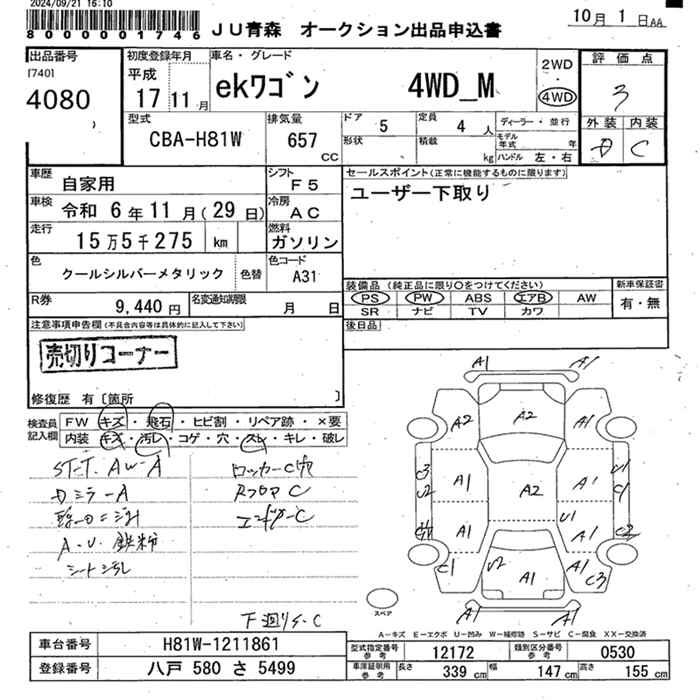 2024/09/21 16:10
8000001746
JU青森 オークション出品申込書
10月 1日AA
出品番号
[740]
4080
初度登録年月
平成
17 11月
車名・グレード
ekワゴン 4WD_M
2WD
・
4WD
評価点
3
外装 内装
D C
型式
CBA-H81W
排気量
657
CC
ドア 5
形状
定員 4人
積載 kg
ディーラー・並行
モデル年式 年
ハンドル 左・右
車歴 自家用
シフト F5
セールスポイント(正常に機能するものに限ります)
ユーザー下取り
車検 令和 6年 11月(29日)
冷房 AC
走行 15万5千275 km
燃料 ガソリン
色 クールシルバーメタリック 色替
色コード A31
装備品 (純正品に限り○をつけてください)
PS PW ABS エアB AW
SR ナビ TV カワ
新車保証書
有・無
R券 9,440円
名変通知期限 月 日
後日品
注意事項申告欄(不具合内容等は具体的に記入して下さい)
売切りコーナー
修復歴 有[箇所 ]
検査員記入欄
FW キズ・飛石・ヒビ割・リペア跡・×要
内装・キズ・汚レ・コゲ・穴・スレ・キレ・破レ
ST-T. AW-A
Dミラ-A
A・U・鉄粉
シート汚レ
ロッカーC
RフロアC
下廻りS-C
A1 A1
A2 A2 A1
A1 A2 A1
A1 A1 A1
U1 C1
C2
U1
C1 A1 C3
スペア
A-キズ E-エクボ U-凹み W-補修跡 S-サビ C-腐食 XX-交換済
車台番号 H81W-1211861
登録番号 八戸 580 さ 5499
型式指定番号 参考 12172
類別区分番号 参考 0530
車庫証明用 参考 長さ 339 cm 幅 147 cm 高さ 155 cm